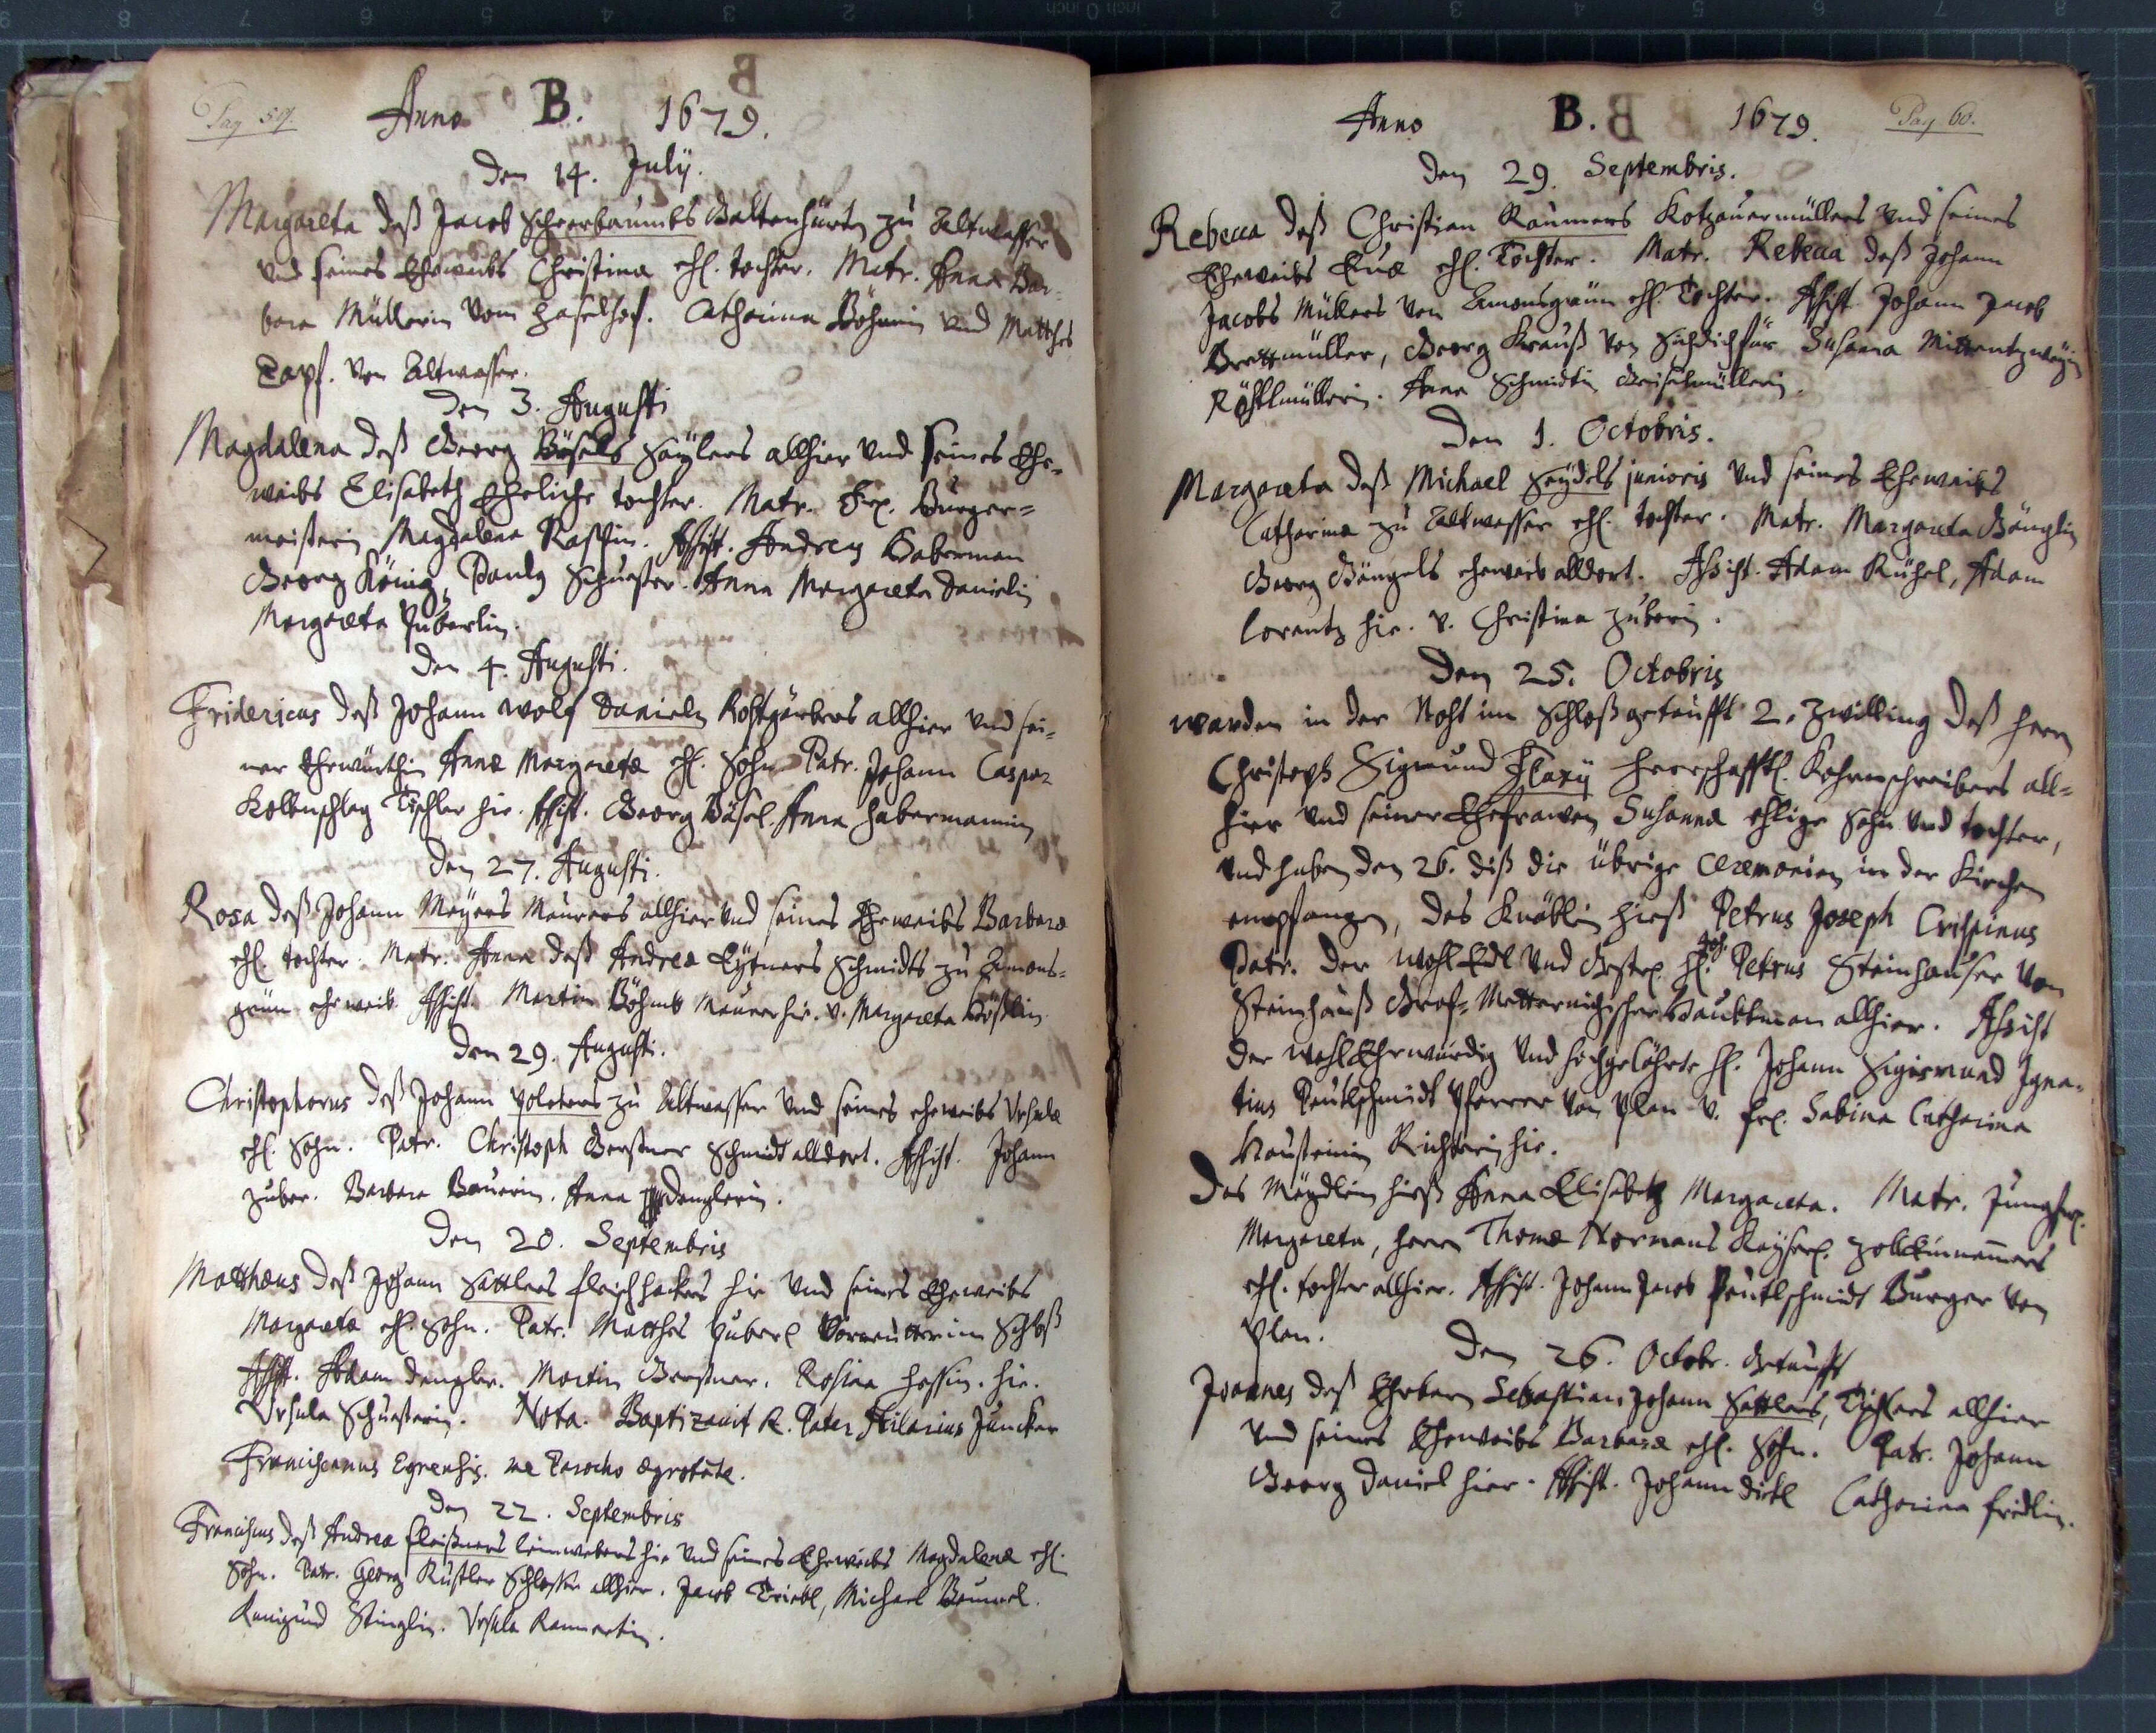 Pag 59.
Anno B. 1679.
Den 14. Julÿ.
Margareta deß Jacob Scheerbaumbs zu Altwasser
vnd seines Eheweibs Christinæ ehl. tochter. Matr. Anna Bar-
bara Müllerin vom Haselhof. Catharina Böhmin vnd Matthes
Zapf. von Altwasser.
Den 3. Augusti
Magdalena deß Georg Bösels Saÿlers allhier vnd seines Ehe-
weibs Elisabeth Eheliche tochter. Matr. Fr. Burger=
meisterin Magdalena Raschin. Assist. Andreas Haberman
Georg König, Paulg Schuester. Anna Margareta Danielin
Margareta Huberlin.
Den 4. Augusti.
Fridericus deß Johann Wolf Daniels Rohtgärbers allhier vnd sei-
ner Ehewürthin Annæ Margaretæ ehl. Sohn Patr. Johann Caspar
Kolbenschlag Tischler hie. Assist. Georg Bösel. Anna Habermannin
Den 27. Augusti.
Rosa deß Johann Meÿers Maurers allhier vnd seines Eheweibs Barbaræ
ehl. tochter. Matr. Anna deß Andreæ Schmidts zu Amons-
grün eheweib Assist. Martin Böhmb Maurer hie. v. Margareta Bößlin
Den 29. Augusti.
Christophorus deß Johann zu Altwasser vnd seines eheweibs Vrsulæ
ehl. Sohn. Patr. Christoph Gerstner Schmidt alldort. Assist. Johann
Zuber. Barbara Bauerin. Anna Denglerin.
Den 20. Septembris
Matthæus deß Johann Sattlers fleischhackers hie vnd seines Eheweibs
Margaretæ ehl. Sohn. Patr. Matthes Huberl im Schloß
Assist. Adam Dengler. Martin Gerstner. Rosina Hossin. hie.
Vrsula Schusterin. Nota. Baptizavit R. Pater Hilarius Juncker
Franciscanus Egrensis. me Parocho ægrotāte.
Den 22. Septembris
Franciscus deß Andreæ fleißners leinwebers hie vnd seines Eheweibs Magdalenæ ehl.
Sohn. Patr. Georg Küstler Schlosser allhier. Jacob Triebl, Michael
Kunigund Stinglin. Vrsula
Anno B. 1679. Pag 60.
Den 29. Septembris.
Rebecca deß Christian Raumers Kotzauermüllers vnd seines
Eheweibs Euæ ehl. Tochter. Matr. Rebecca deß Johann
Jacobs Müllers von Amonsgrün ehl. Tochter. Assist Johann Jacob
Brettmüller, Georg Krauß von Sichdichfür Susanna Mittentzweÿin
Röhlmüllerin. Anna Schmidtin Geiselmüllerin.
Den 1. Octobris.
Margareta deß Michael Seÿdels junioris vnd seines Eheweibs
Catharinæ zu Altwasser ehl. tochter. Matr. Margareta Gänglin
Georg Gängels eheweib alldort. Assist. Adam Kühel, Adam
Lorentz hie. v. Christina Zuberin.
Den 25. Octobris
wurden in der Noht im Schloß getaufft 2. Zwilling deß herrn
Christoph Sigmund Flaxÿ herrschafftl. Kohrnschreibers all-
hier vnd seiner Ehefrawen Susannæ ehlige Sohn vnd tochter,
vnd haben den 26. diß die übrige Ceremonien in der Kirchen
empfangen, das Knäblein hieß Petrus Joseph Crispinus
Patr. der WohlEdl vnd Gestr. H. Joh. Petrus Steinhauser von
Steinhauß Graf-Metternichischer Haubtman allhier. Assist
der WohlEhrwürdig vnd hochgelährte H. Johann Sigismund Igna-
tius Peutlschmidt Pfarrer von Plan v. fr. Sabina Catharina
Haußteinin Richterin hie.
Das Mägdlein hieß Anna Elisabeth Margareta. Matr. Jungfr.
Margareta, herrn Thomæ Normans Kaÿserl. Zolleinnemers
ehl. tochter allhier. Assist. Johann Jacob Peutlschmidt Burger von
Plan.
Den 26. Octobr. getaufft
Joannes deß Ehrbarn Sebastian Johann Sattlers, Tischlers allhier
vnd seines Eheweibs Barbaræ ehl. Sohn. Patr. Johann
Georg Daniel hier. Assist. Johann Dietl Catharina fridlin.